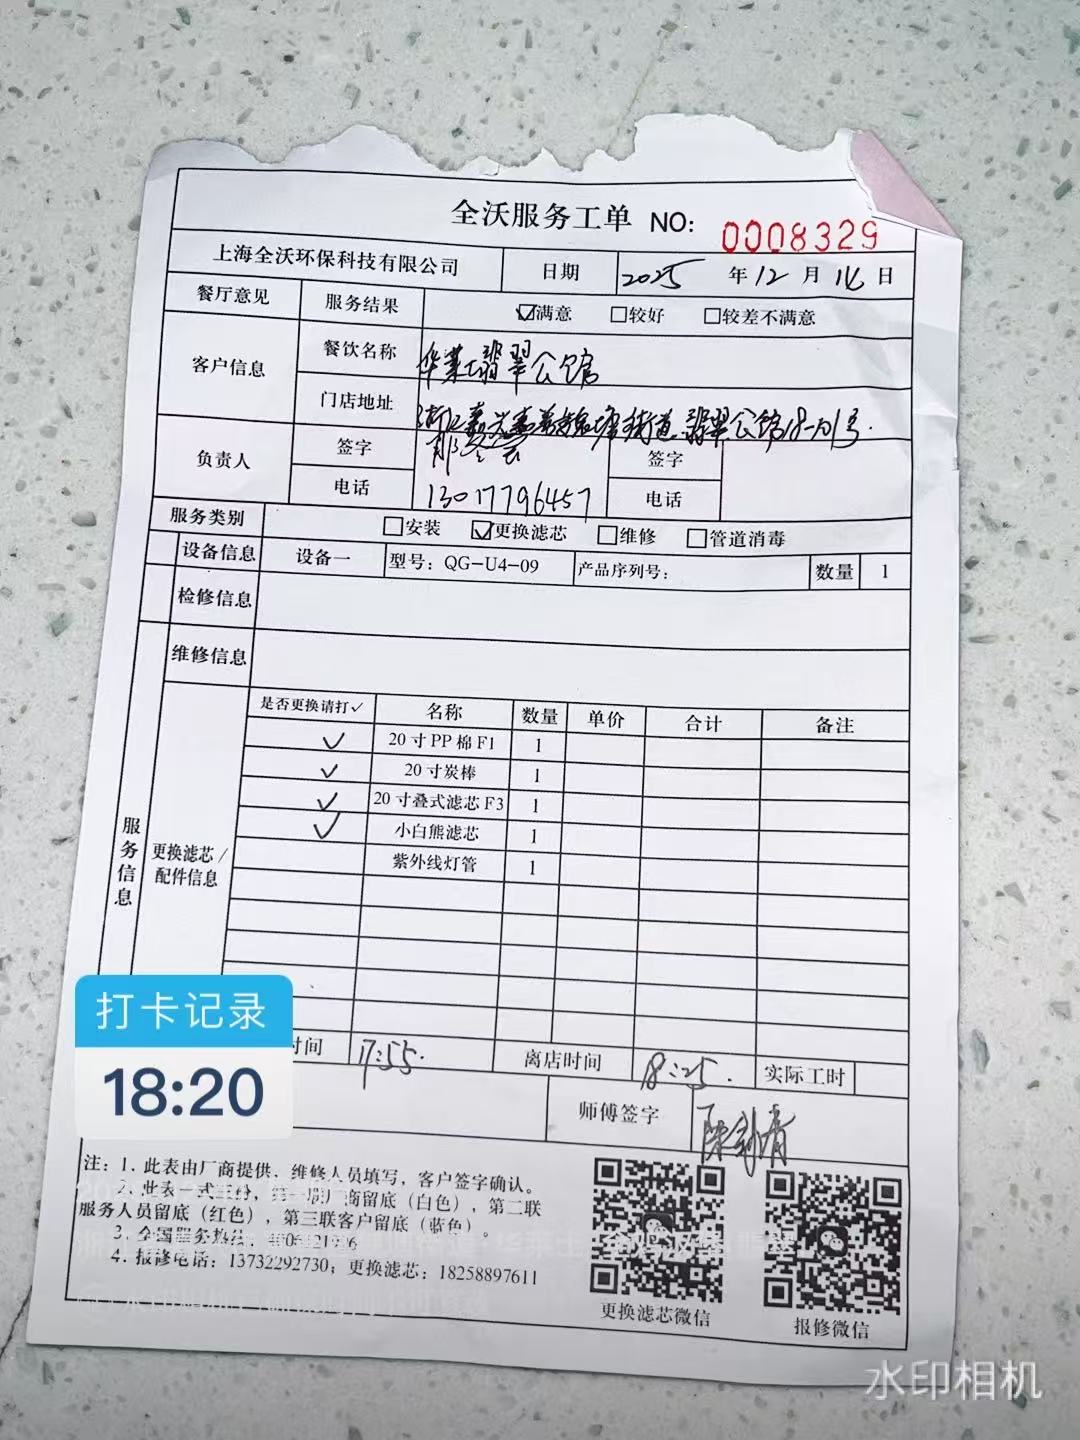 全沃服务工单 NO: 0008329
上海全沃环保科技有限公司 日期 2025 年 12 月 14 日
餐厅意见 服务结果 ☑满意 □较好 □较差不满意
客户信息 餐饮名称 华业翡翠公馆
门店地址 浙江嘉兴嘉善魏塘街道翡翠公馆18-101号.
负责人 签字 签字
电话 13017796457 电话
服务类别 □安装 ☑更换滤芯 □维修 □管道消毒
设备信息 设备一 型号: QG-U4-09 产品序列号: 数量 1
检修信息
维修信息
服务信息
更换滤芯/配件信息
是否更换请打✓ 名称 数量 单价 合计 备注
✓ 20寸PP棉F1 1
✓ 20寸炭棒 1
✓ 20寸叠式滤芯F3 1
✓ 小白熊滤芯 1
紫外线灯管 1
打卡记录
18:20
时间 17:55. 离店时间 18:25. 实际工时
师傅签字
注: 1. 此表由厂商提供, 维修人员填写, 客户签字确认。
2. 此表一式三份, 第一联厂商留底(白色), 第二联
服务人员留底(红色), 第三联客户留底(蓝色)。
3. 全国服务热线:
4. 报修电话: 13732292730; 更换滤芯: 18258897611
更换滤芯微信
报修微信
水印相机